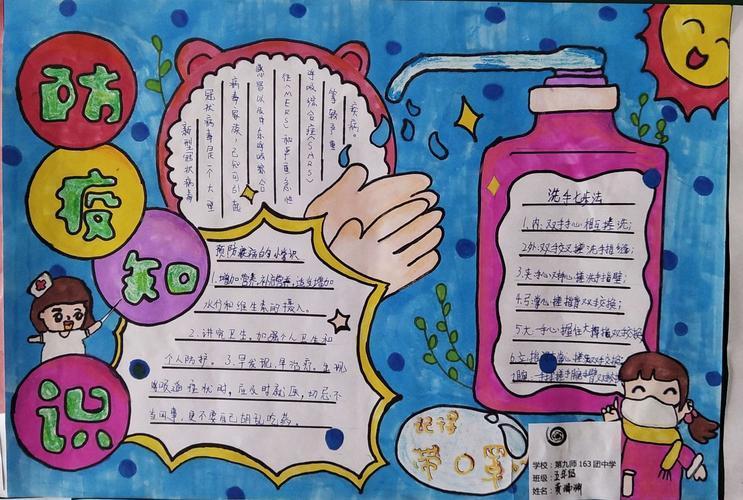 防
疫
知
识
新型冠状病毒
冠状病毒是一个大型
病毒家族，已知可引起
感冒以及中东呼吸综合
征(MERS)和严重急性
呼吸综合征(SARS)
等较严重
疾病。
预防疾病的小常识
1.增加营养，补充营养，适当增加
水份和维生素的摄入。
2.讲究卫生，加强个人卫生和
个人防护。3.早发现，早治疗。出现
呼吸道症状时，应及时就医，切忌不
当回事，更不要自己胡乱吃药。
洗手七步法
1.内：双手手心相互搓洗；
2.外：双手交叉搓洗手指缝；
3.夹：手心对手心搓洗手指
4.弓：
双手交换；
5.大：手心握住大拇指双手交换；
6.立：
双手交换；
7.腕：
记得
带口罩
学校：第九师 163 团中学
班级：五年级
姓名：黄